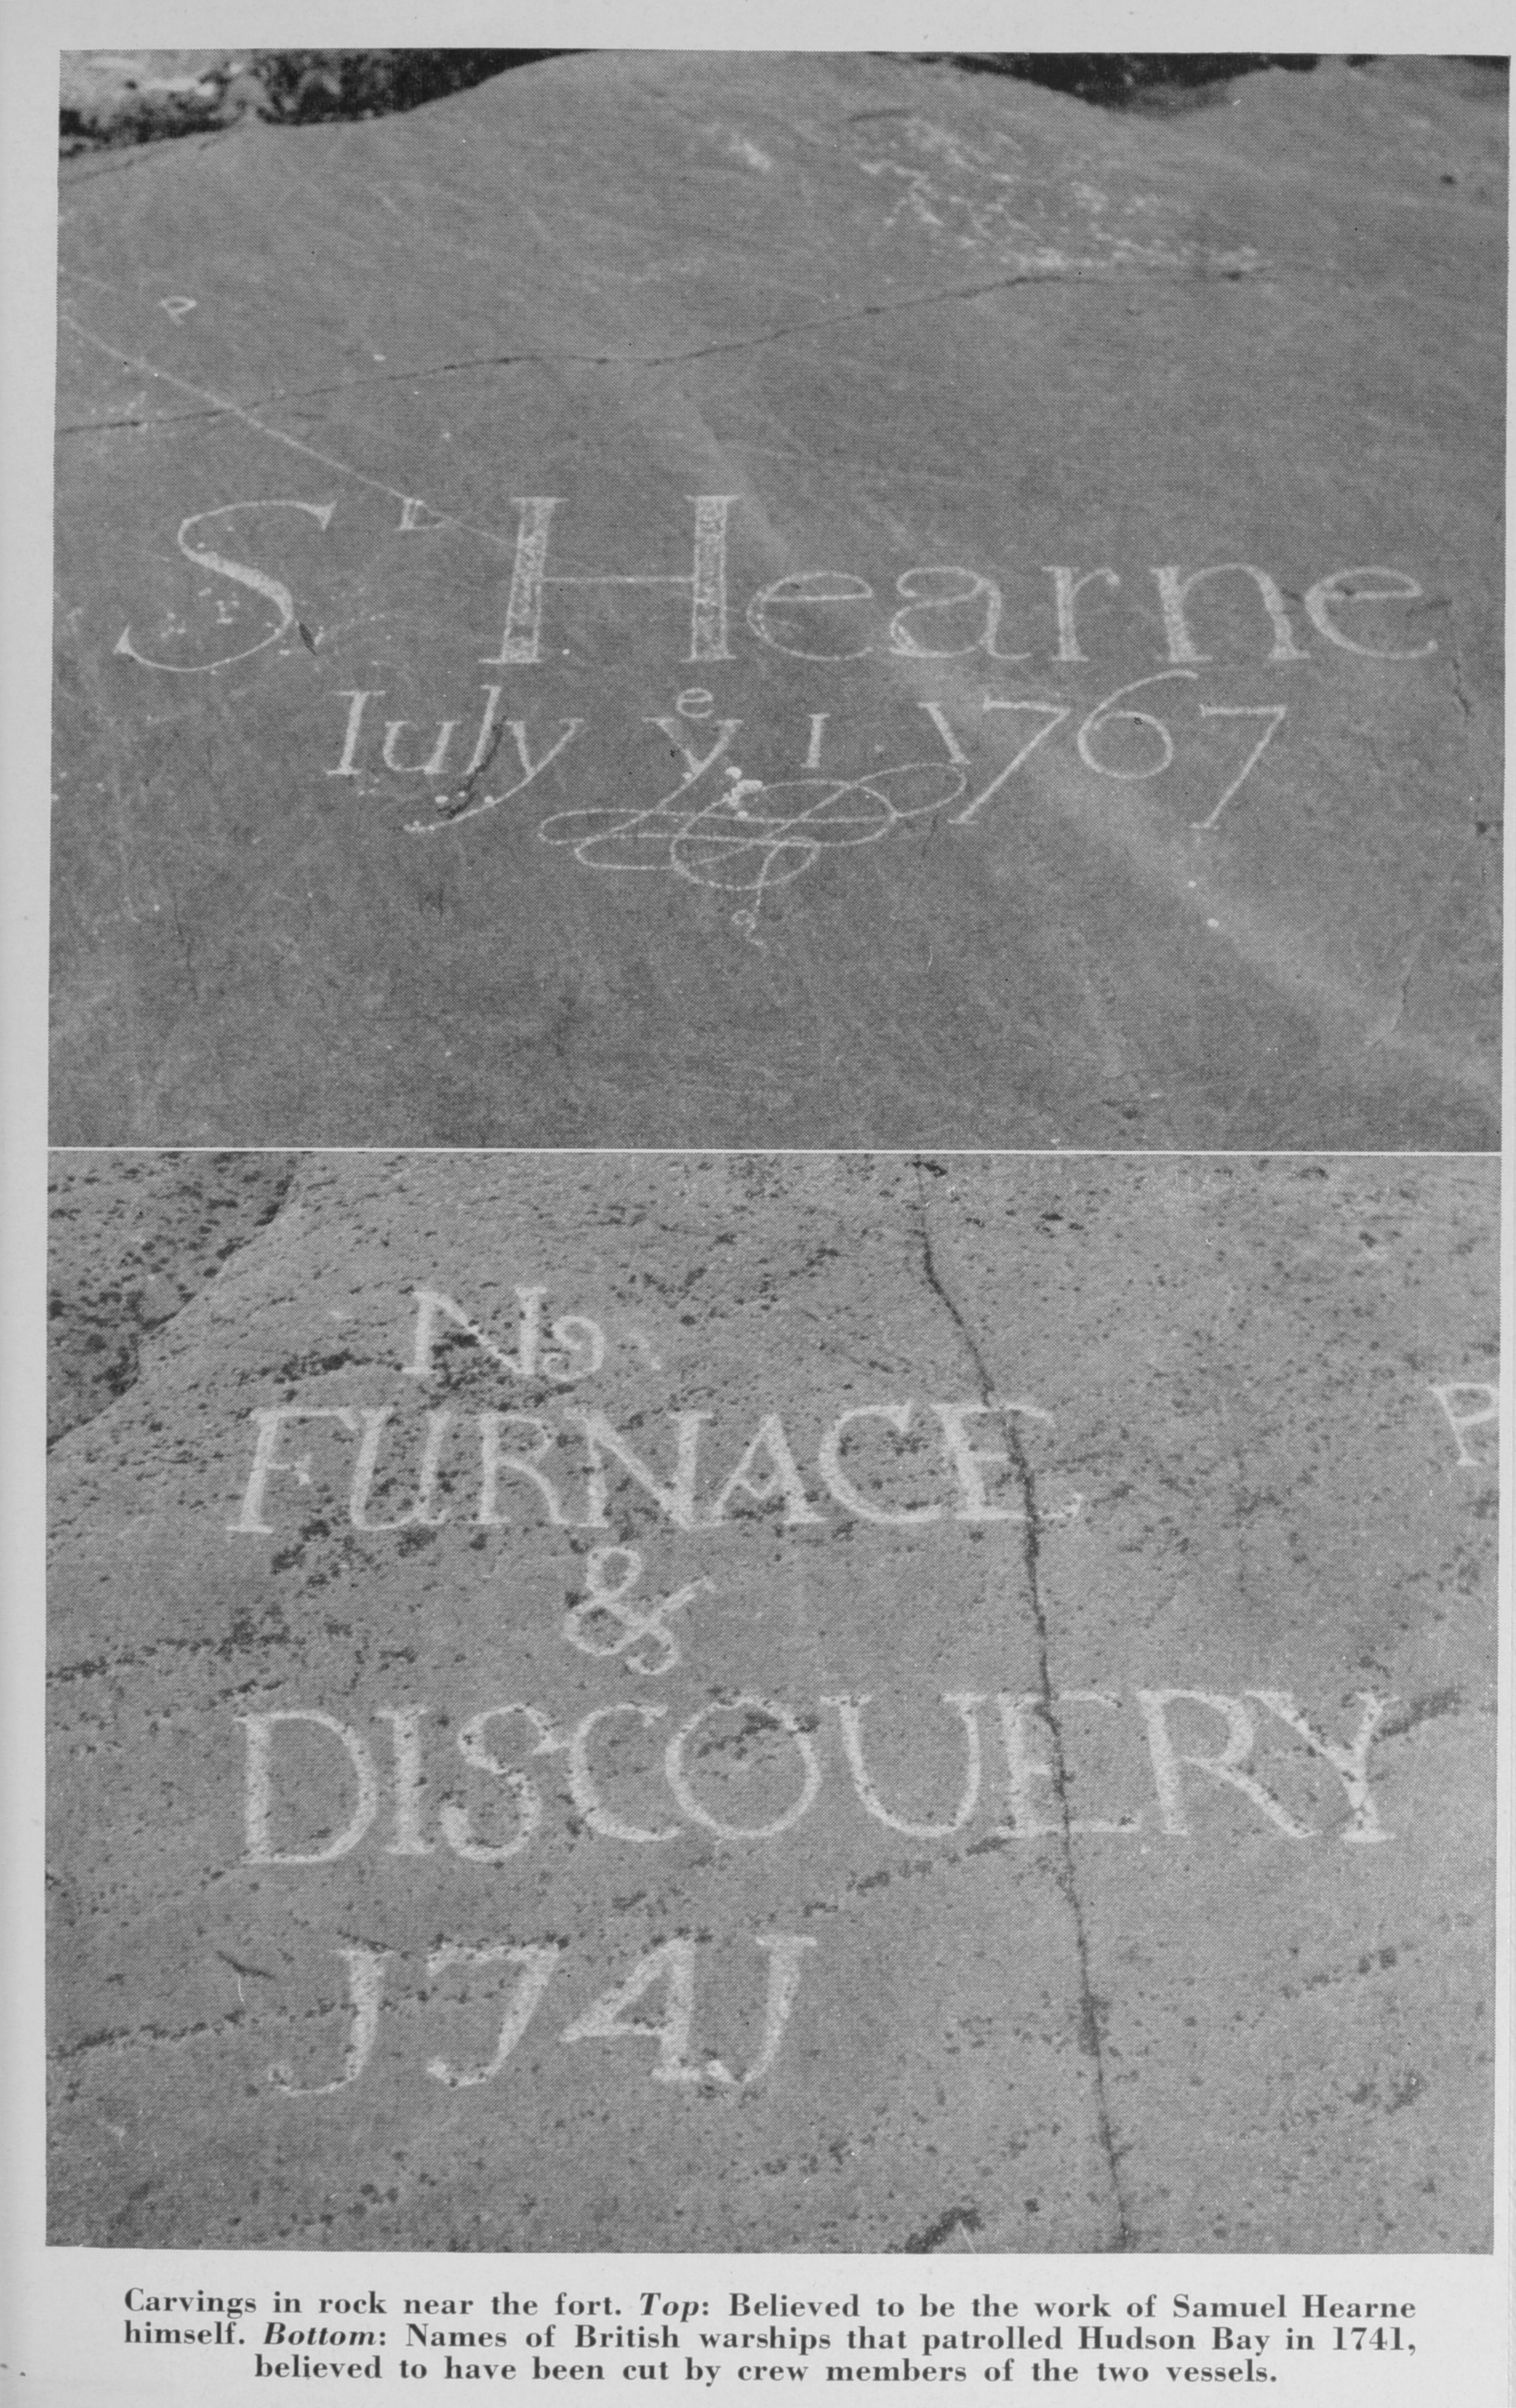 P
S L Hearne
Iuly yᵉ 1 1767
No
FURNACE
&
DISCOUERY
J74J
P
Carvings in rock near the fort. Top: Believed to be the work of Samuel Hearne
himself. Bottom: Names of British warships that patrolled Hudson Bay in 1741,
believed to have been cut by crew members of the two vessels.